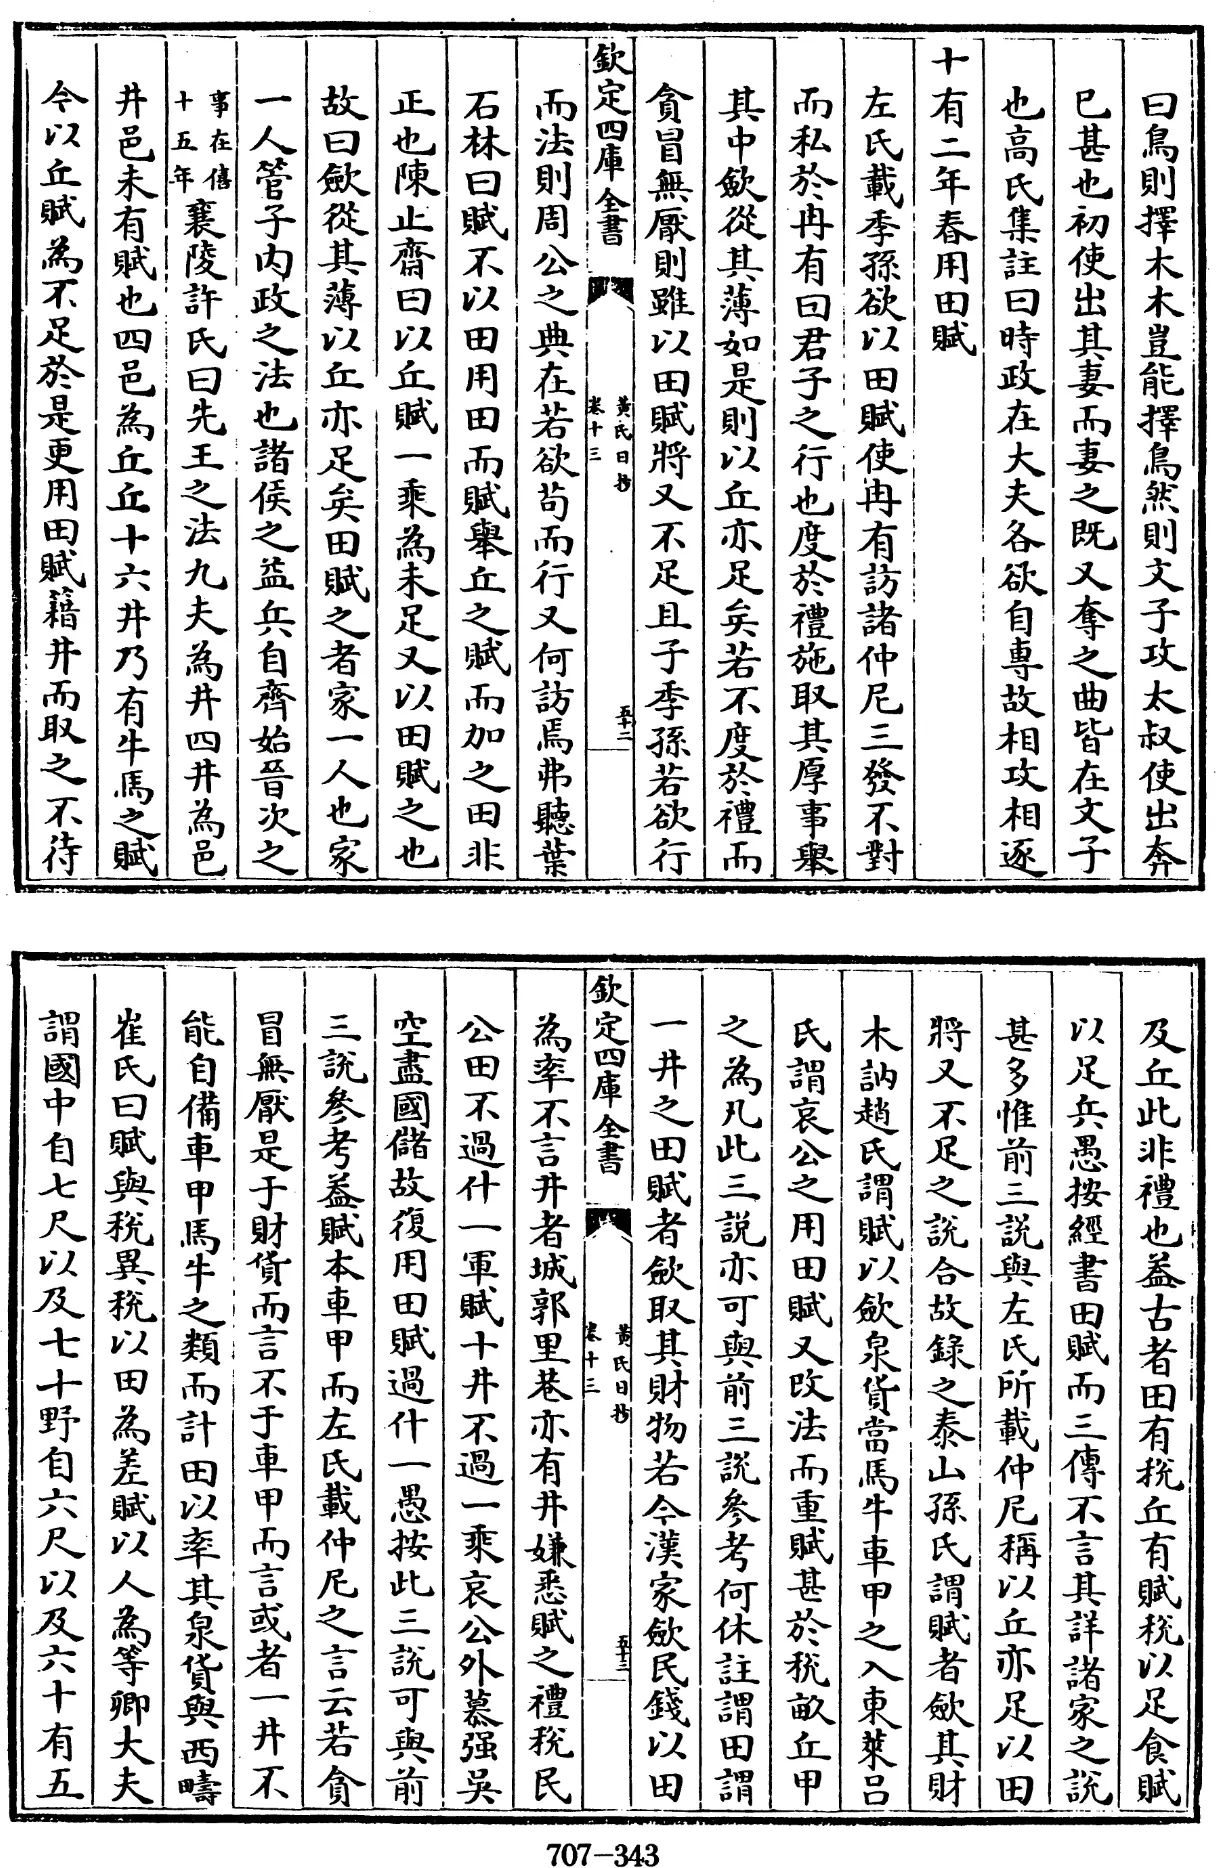 曰鳥則擇木木豈能擇鳥然則文子攻太叔使出奔
已甚也初使出其妻而妻之既又奪之曲皆在文子
也高氏集註曰時政在大夫各欲自專故相攻相逐
十有二年春用田賦
左氏載季孫欲以田賦使冉有訪諸仲尼三發不對
而私於冉有曰君子之行也度於禮施取其厚事舉
其中斂從其薄如是則以丘亦足矣若不度於禮而
貪冒無厭則雖以田賦將又不足且子季孫若欲行
欽定四庫全書
黃氏日抄
卷十三
五十二
而法則周公之典在若欲苟而行又何訪焉弗聽葉
石林曰賦不以田用田而賦舉丘之賦而加之田非
正也陳止齋曰以丘賦一乘為未足又以田賦之也
故曰斂從其薄以丘亦足矣田賦之者家一人也家
一人管子内政之法也諸侯之益兵自齊始晉次之
事在僖
十五年襄陵許氏曰先王之法九夫為井四井為邑
井邑未有賦也四邑為丘丘十六井乃有牛馬之賦
今以丘賦為不足於是更用田賦籍井而取之不待
及丘此非禮也葢古者田有稅丘有賦稅以足食賦
以足兵愚按經書田賦而三傳不言其詳諸家之說
甚多惟前三說與左氏所載仲尼稱以丘亦足以田
將又不足之說合故錄之泰山孫氏謂賦者斂其財
木訥趙氏謂賦以斂泉貨當馬牛車甲之入東萊呂
氏謂哀公之用田賦又改法而重賦甚於稅畝丘甲
之為凡此三說亦可與前三說參考何休註謂田謂
一井之田賦者斂取其財物若今漢家斂民錢以田
欽定四庫全書
黃氏日抄
卷十三
五十三
為率不言井者城郭里巷亦有井嫌悉賦之禮稅民
公田不過什一軍賦十井不過一乘哀公外慕强吳
空盡國儲故復用田賦過什一愚按此三說可與前
三說參考葢賦本車甲而左氏載仲尼之言云若貪
冒無厭是于財貨而言不于車甲而言或者一井不
能自備車甲馬牛之類而計田以率其泉貨與西疇
崔氏曰賦與稅異稅以田為差賦以人為等卿大夫
謂國中自七尺以及七十野自六尺以及六十有五
707-343